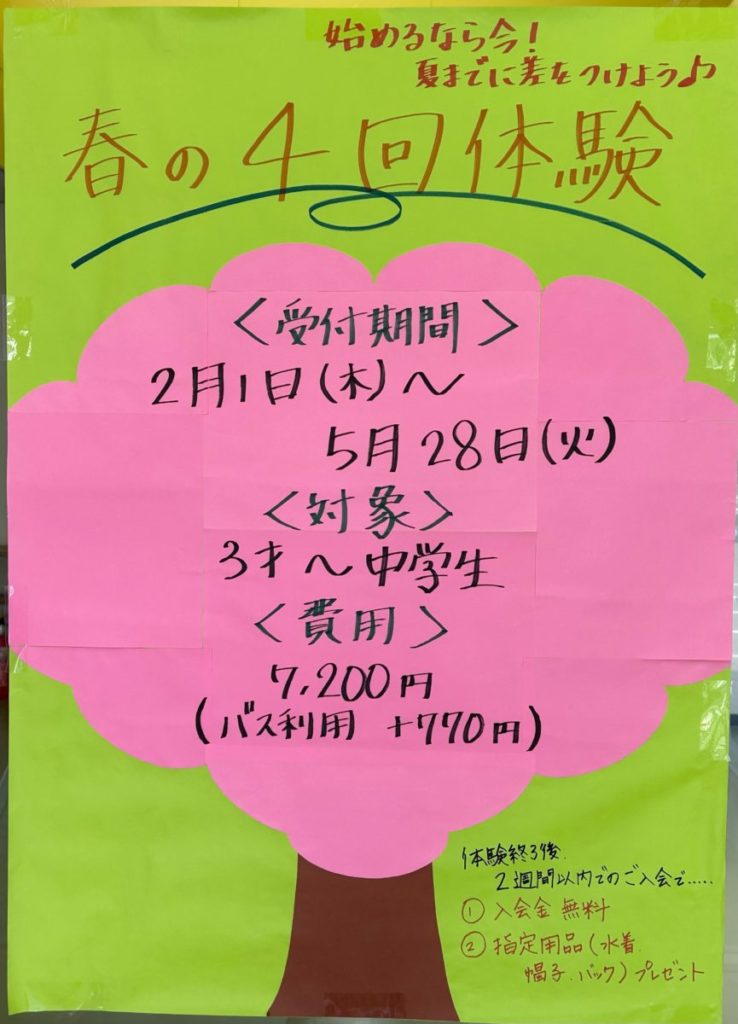 始めるなら今!
夏までに差をつけよう♪
春の4回体験
<受付期間>
2月1日(木)~
5月28日(火)
<対象>
3才~中学生
<費用>
7,200円
(バス利用 +770円)
体験終了後、
2週間以内でのご入会で.....
① 入会金 無料
② 指定用品(水着、
帽子、バック)プレゼント